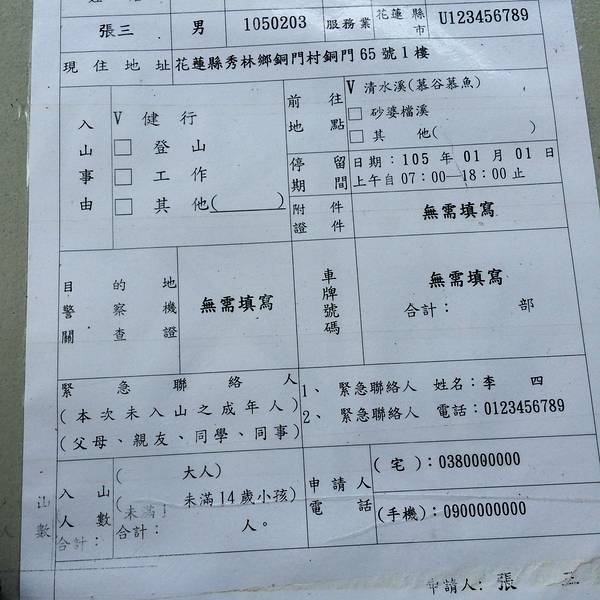 張三 男 1050203 服務業 花蓮 縣市 U123456789
現住地址 花蓮縣秀林鄉銅門村銅門65號1樓
入山事由
V 健行
□ 登山
□ 工作
□ 其他( )
前往地點
V 清水溪(慕谷慕魚)
□ 砂婆檔溪
□ 其他( )
停留期間
日期：105 年 01 月 01 日
上午自07：00—18：00 止
附件證件 無需填寫
目的地警察機關查證 無需填寫
車牌號碼
無需填寫
合計： 部
緊急聯絡人
(本次未入山之成年人)
(父母、親友、同學、同事)
1、 緊急聯絡人 姓名：李 四
2、 緊急聯絡人 電話：0123456789
入山人數
( 大人)
( 未滿14歲小孩)
合計： 人。
申請人電話
(宅)：0380000000
(手機)：0900000000
申請人：張 三